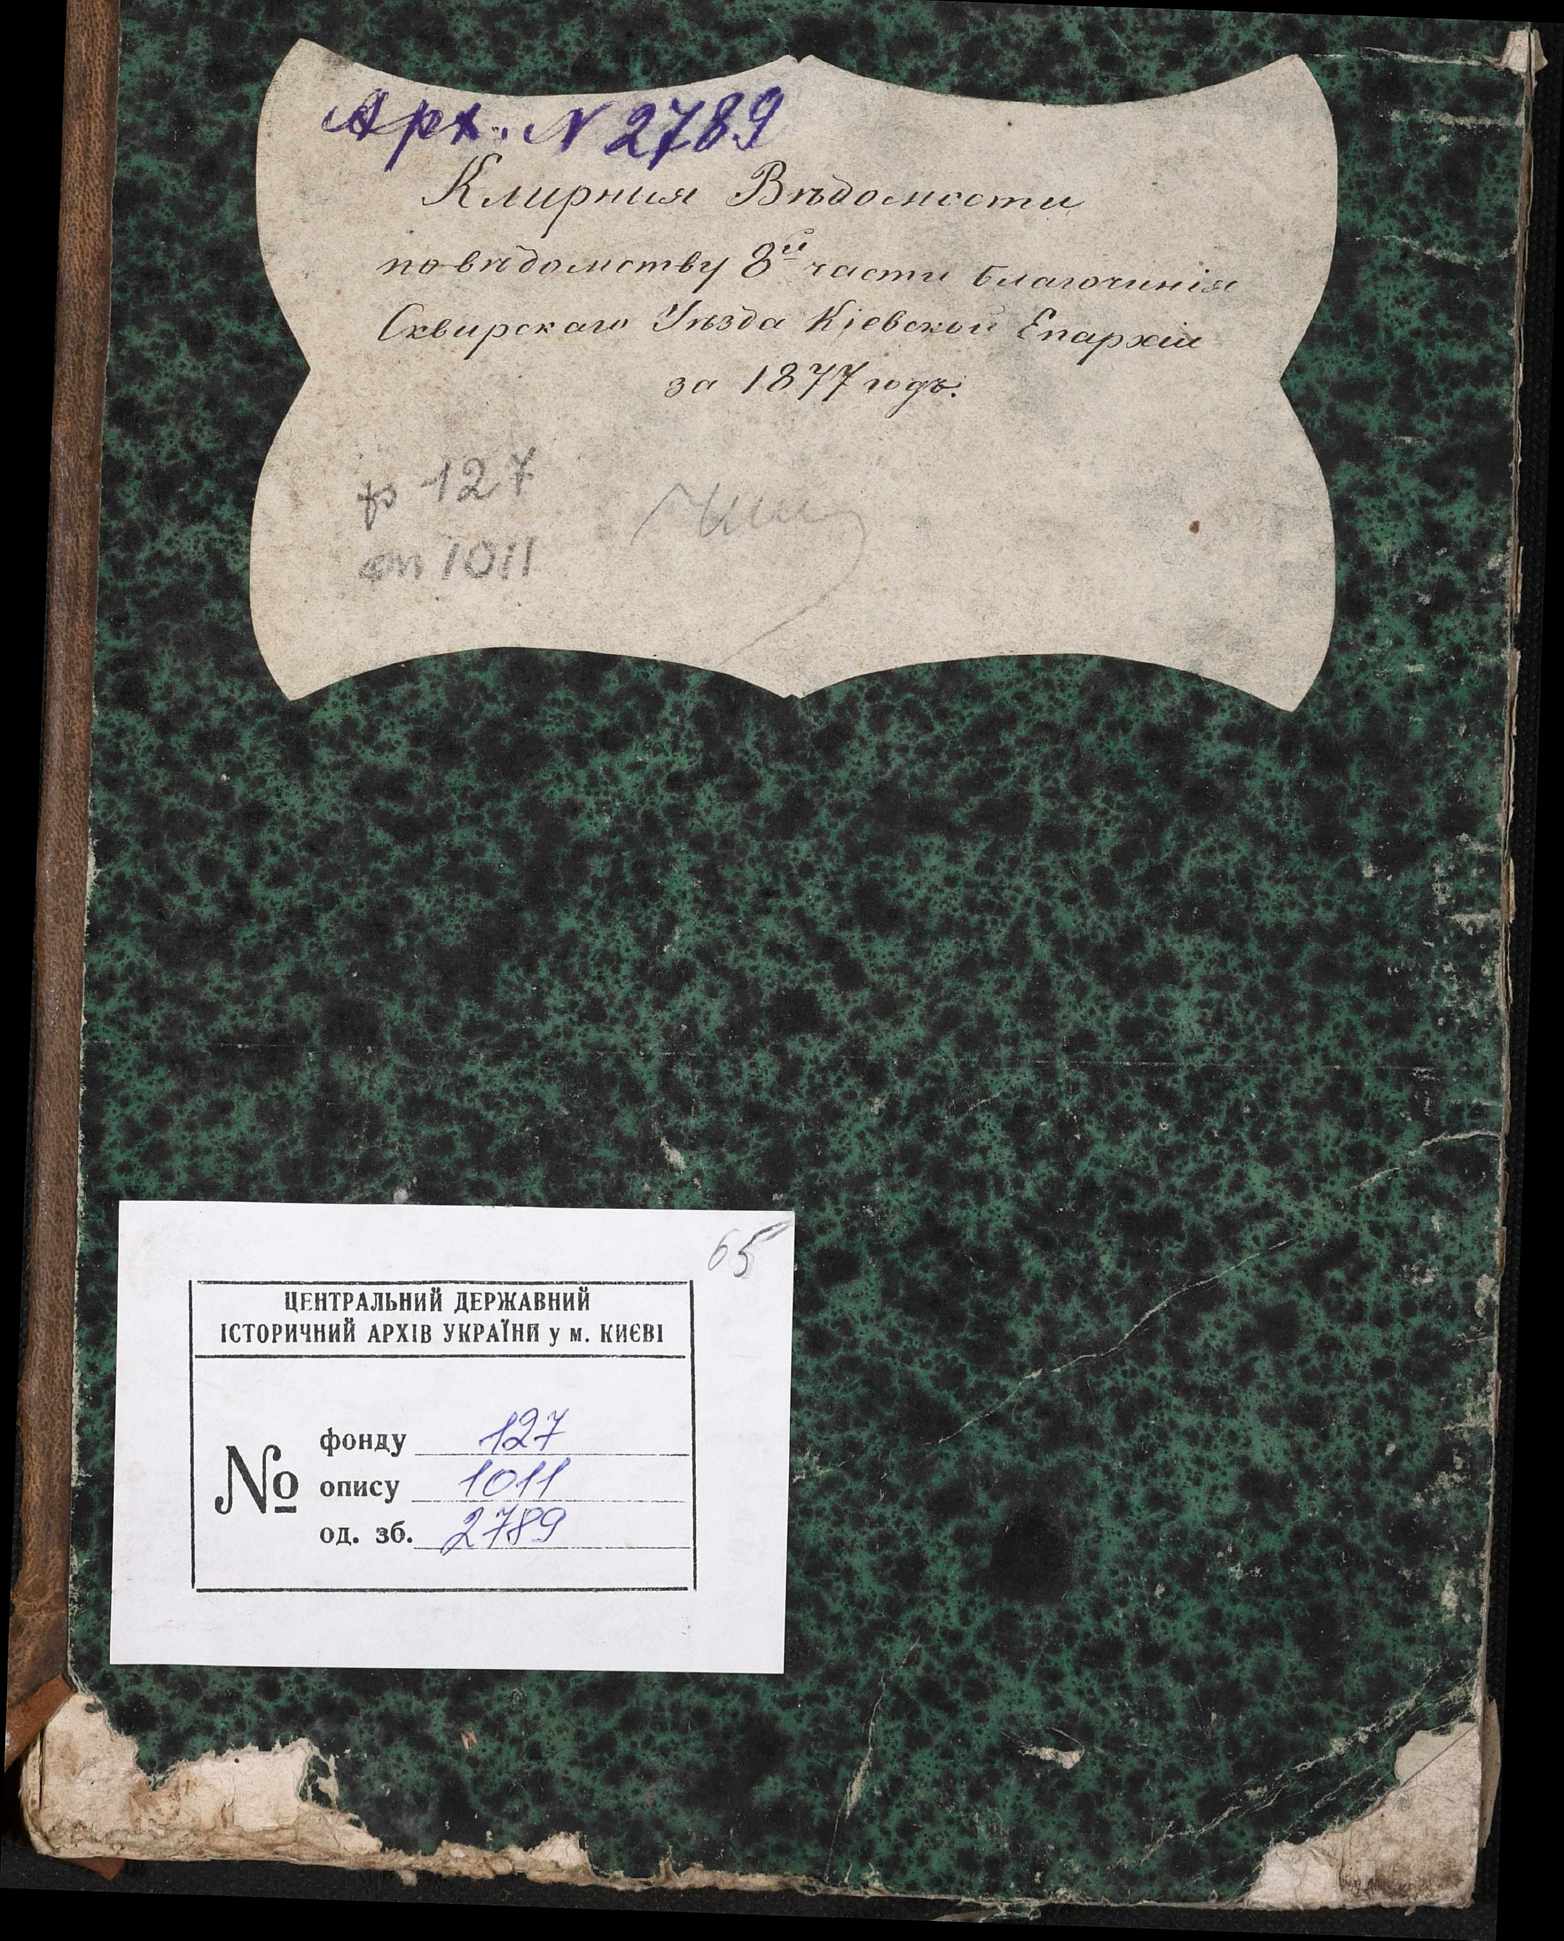 Арх. N 2789
Клирныя Вѣдомости
по вѣдомству 8й части благочинія
Сквирскаго Уѣзда Кіевской Епархіи
за 1877 годъ.
ф 127
оп 1011
65
ЦЕНТРАЛЬНИЙ ДЕРЖАВНИЙ
ІСТОРИЧНИЙ АРХІВ УКРАЇНИ у м. КИЄВІ
№
фонду 127
опису 1011
од. зб. 2789